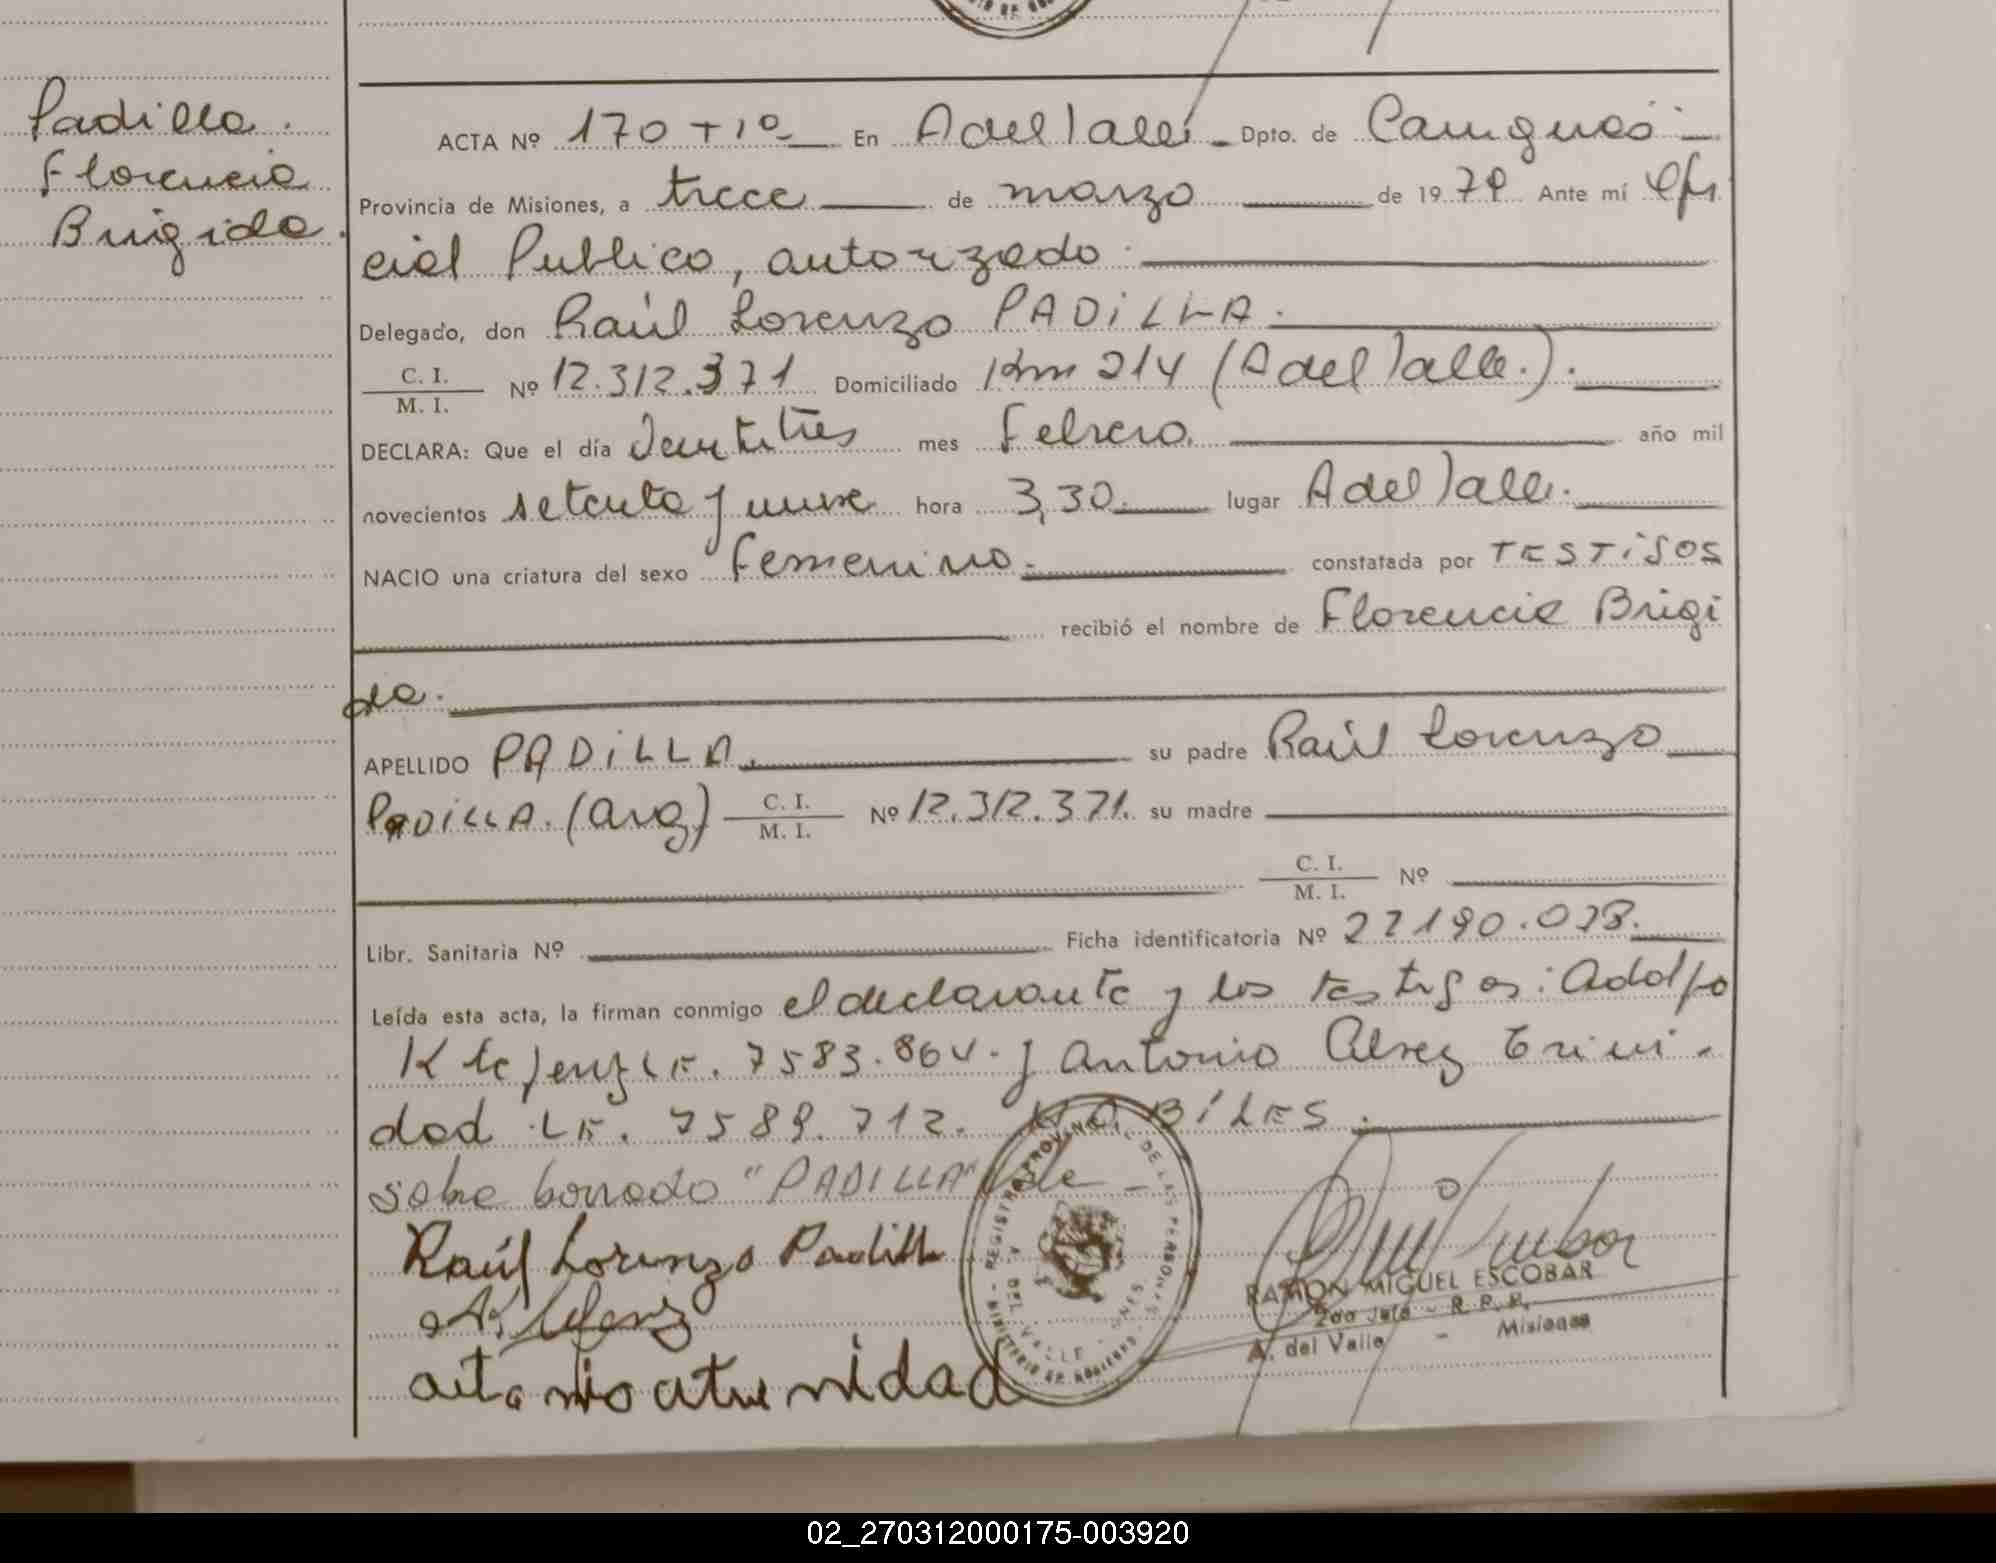 Padilla.
Florencia
Brigida.
ACTA Nº 170 + 1º En A del Valle. Dpto. de Cainguás
Provincia de Misiones, a trece de marzo de 1979 Ante mí Ofi
cial Publico, autorizado.
Delegado, don Raúl Lorenzo PADiLLA.
C. I. / M. I. Nº 12.312.371 Domiciliado Km 214 (A del Valle.).
DECLARA: Que el día veintitres mes Febrero. año mil
novecientos setenta y nueve hora 3,30. lugar A del Valle.
NACIO una criatura del sexo Femenino. constatada por TESTiGOS
recibió el nombre de Florencia Brigi
da.
APELLIDO PADiLLA. su padre Raúl Lorenzo
PADiLLA. (Arg) C. I. / M. I. Nº 12.312.371. su madre
C. I. / M. I. Nº
Libr. Sanitaria Nº Ficha identificatoria Nº
Leída esta acta, la firman conmigo el declarante y los testigos: Adolfo
LE. 7583.864. y Antonio Trini-
dad LE. 7589.712. HABÍLES.
sobre borrado "PADILLA" Vale -
Raúl Lorenzo Padilla
REGISTRO PROVINCIAL DE LAS PERSONAS
A. DEL VALLE - MISIONES
MINISTERIO DE GOBIERNO
RAMON MIGUEL ESCOBAR
2do Jefe - R. P. P.
A. del Valle - Misiones
02_270312000175-003920